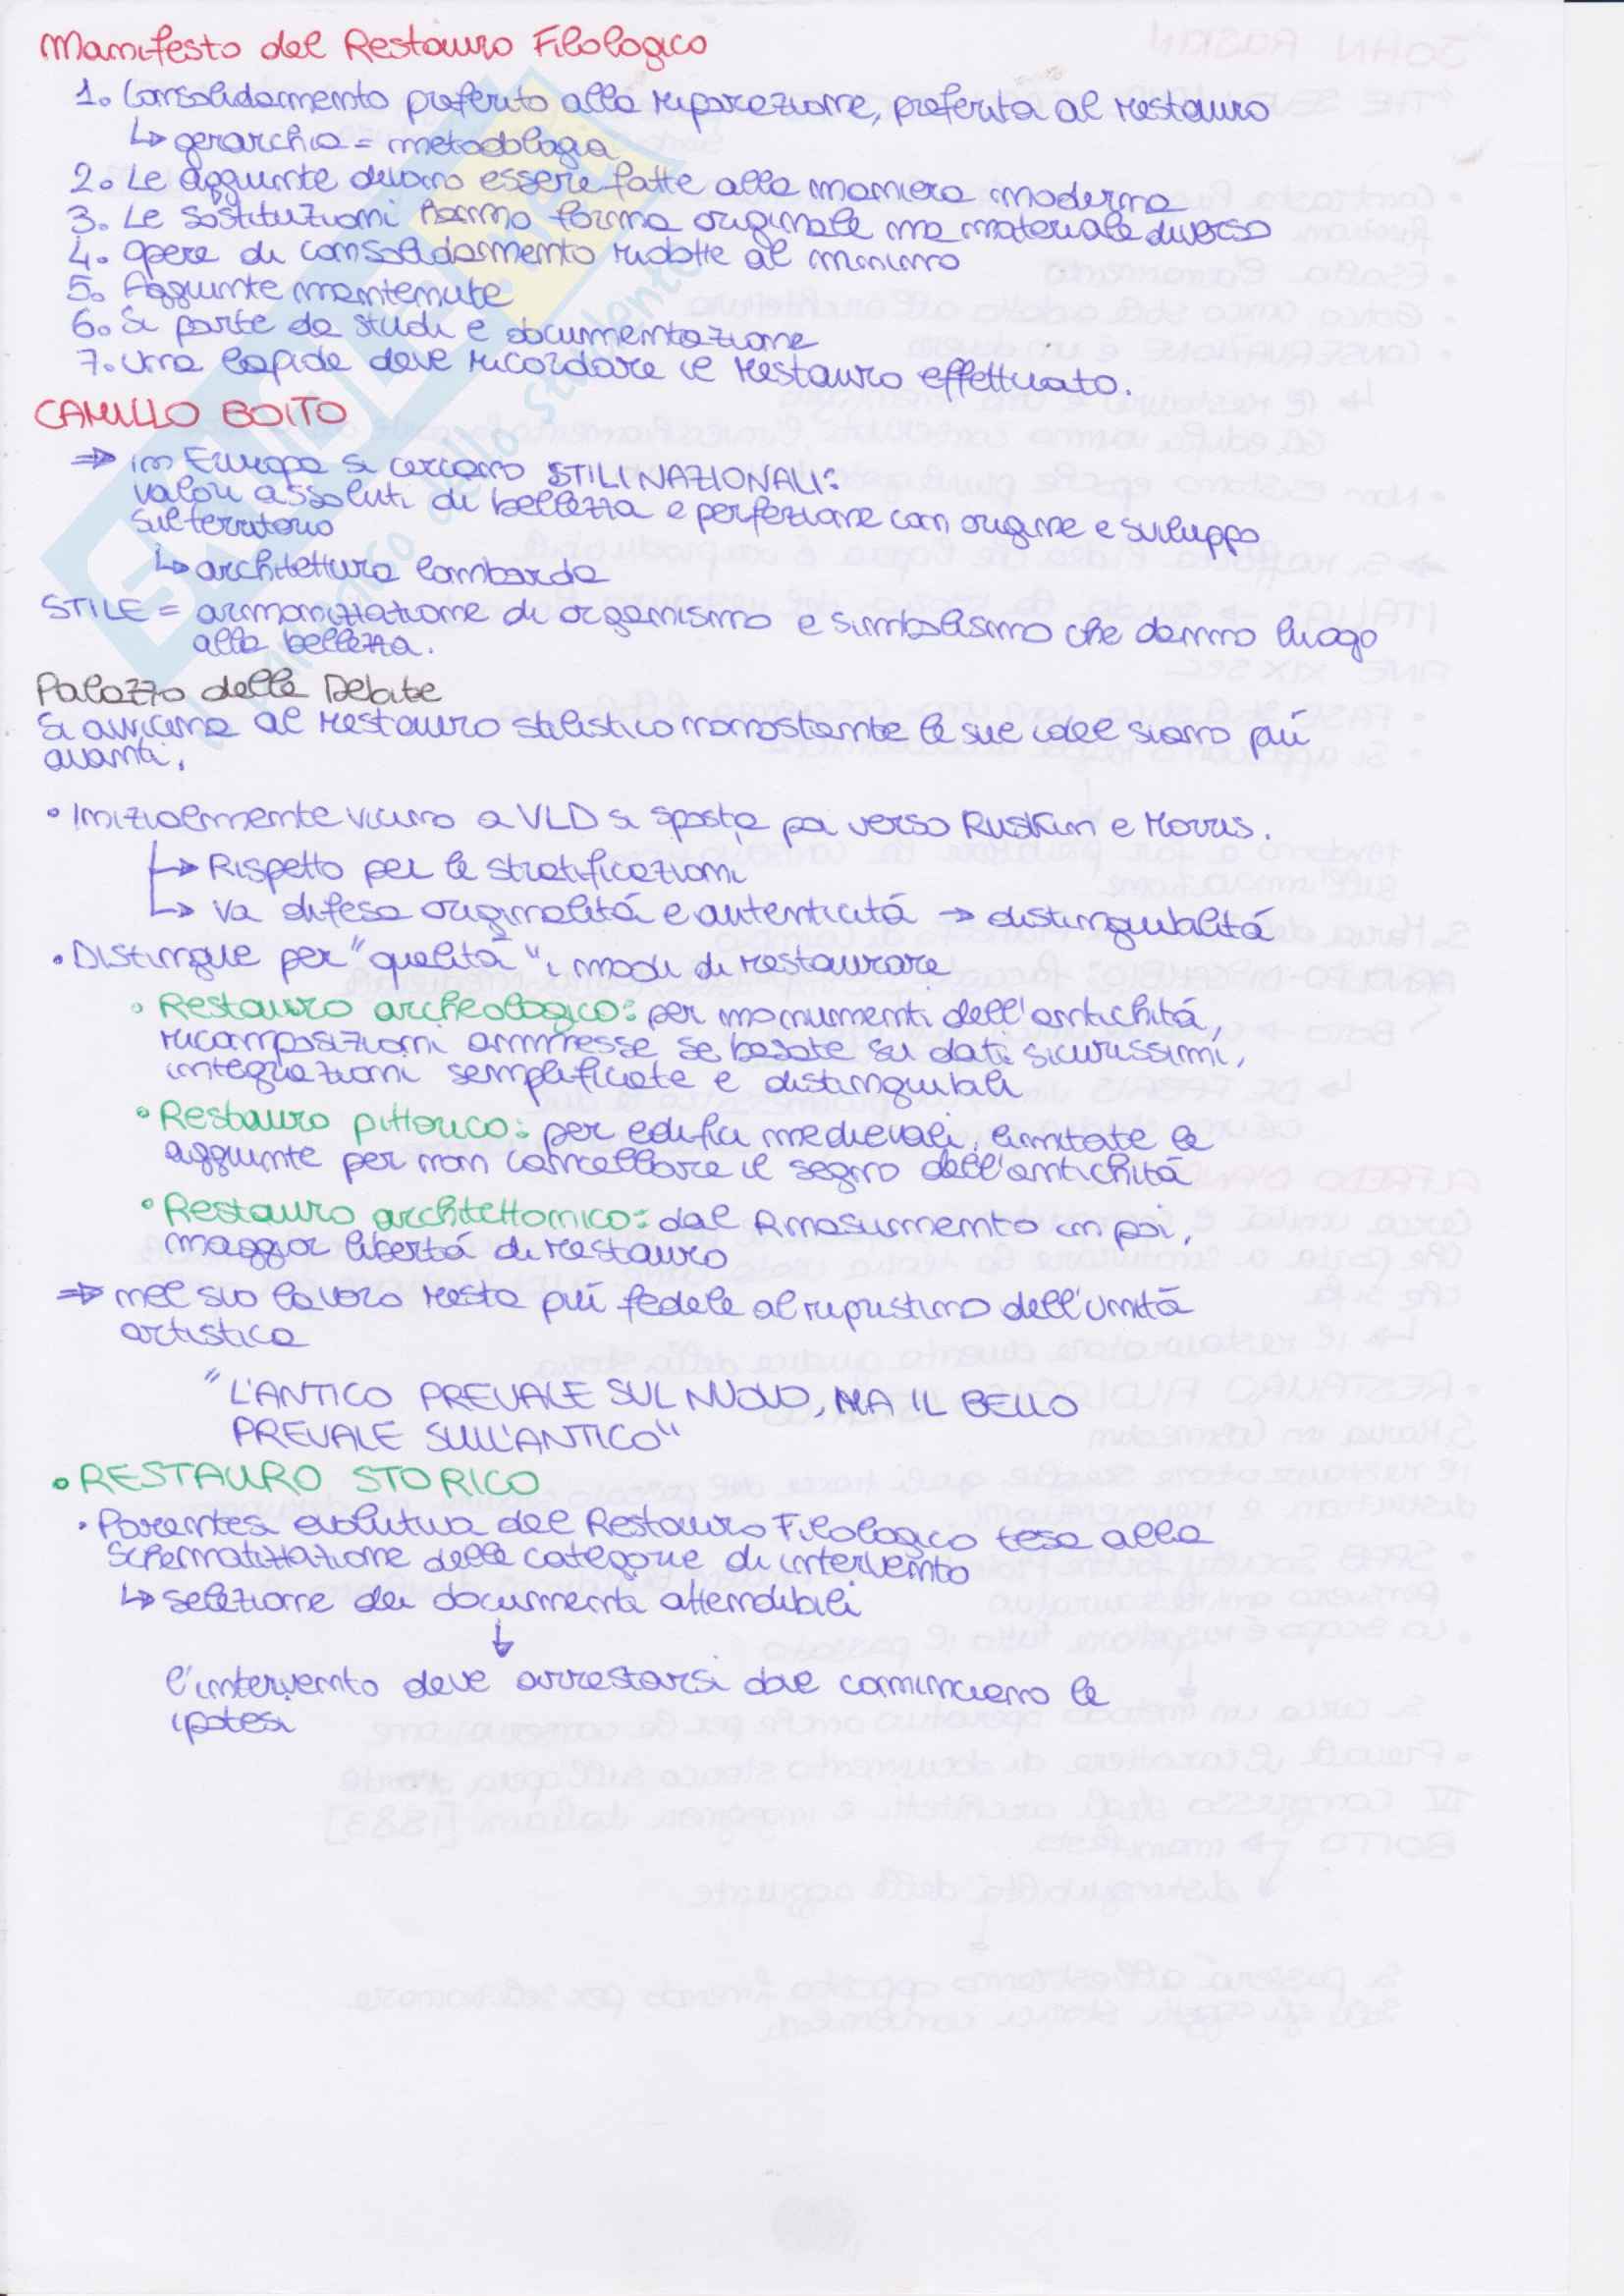 Manifesto del Restauro Filologico
1. Consolidamento preferito alla riparazione, preferita al restauro
↳ gerarchia = metodologia
2. Le aggiunte devono essere fatte alla maniera moderna
3. Le sostituzioni hanno forma originale ma materiale diverso
4. Opere di consolidamento ridotte al minimo
5. Aggiunte mantenute
6. Si parte da studi e documentazione
7. Una lapide deve ricordare il restauro effettuato.
CAMILLO BOITO
⇒ in Europa si cercano STILI NAZIONALI:
valori assoluti di bellezza e perfezione con origine e sviluppo
sul territorio
↳ architettura lombarda
STILE = armonizzazione di organismo e simbolismo che danno luogo
alla bellezza.
Palazzo delle Debite
Si avvicina al restauro stilistico nonostante le sue idee siano più
avanti.
• Inizialmente vicino a VLD si sposta poi verso Ruskin e Morris.
↳ Rispetto per le stratificazioni
↳ va difesa originalitá e autenticitá → distinguibilitá
• Distingue per "qualità" i modi di restaurare
• Restauro archeologico: per monumenti dell'antichitá,
ricomposizioni ammesse se basate su dati sicurissimi,
integrazioni semplificate e distinguibili
• Restauro pittorico: per edifici medievali, limitate le
aggiunte per non cancellare il segno dell'antichità
• Restauro architettonico: dal Rinascimento in poi,
maggior libertá di restauro
⇒ nel suo lavoro resta piú fedele al ripristino dell'unità
artistica
"L'ANTICO PREVALE SUL NUOVO, MA IL BELLO
PREVALE SULL'ANTICO"
• RESTAURO STORICO
• Parentesi evolutiva del Restauro Filologico tesa alla
schematizzazione delle categorie di intervento
↳ selezione dei documenti attendibili
↓
l'intervento deve arrestarsi dove cominciano le
ipotesi